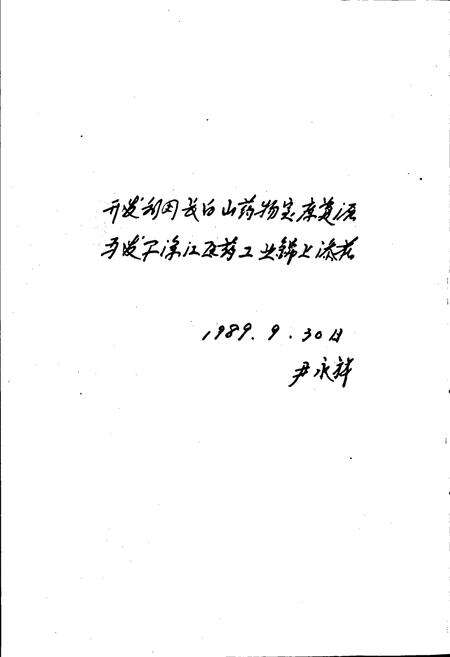 开发利用长白山药物宝库资源
为发展浑江医药工业锦上添花
1989.9.30日
尹永祥